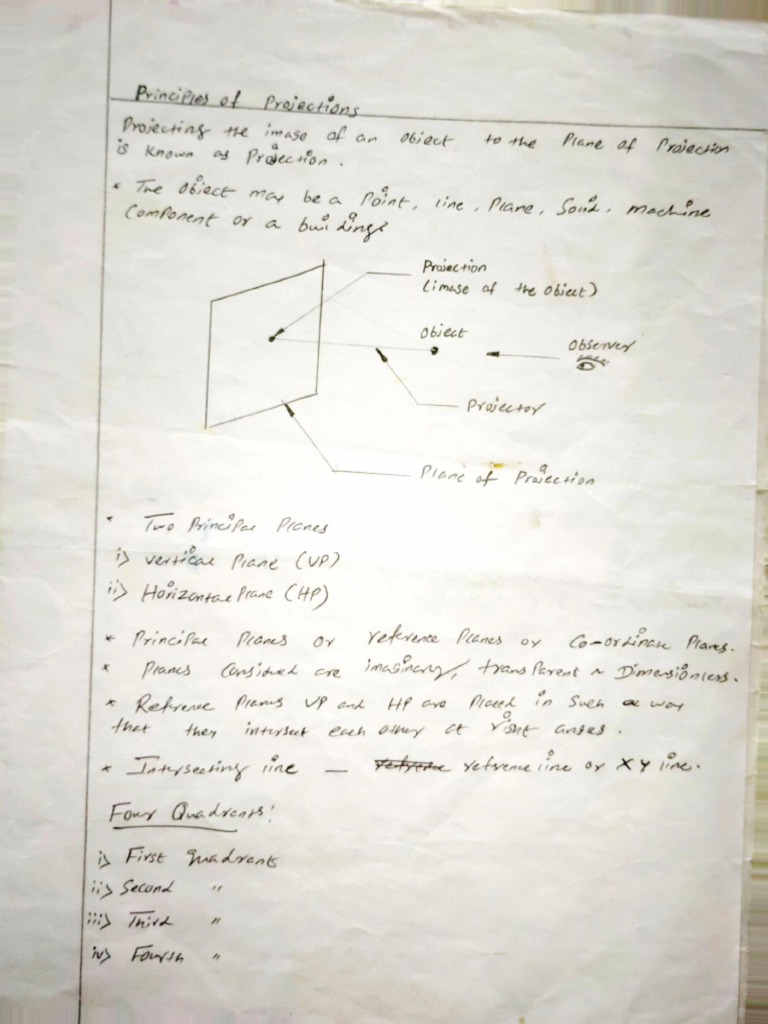 Principles of Projections
Projecting the image of an object to the Plane of Projection
is known as Projection.
* The object may be a Point, line, Plane, Solid, machine
Component or a buildings
Projection
(image of the object)
Object
Observer
Projector
Plane of Projection
* Two Principal Planes
i) vertical Plane (VP)
ii) Horizontal Plane (HP)
* Principal Planes or reference Planes or Co-ordinate Planes.
* Planes Considered are imaginary, transparent ~ Dimensionless.
* Reference Planes VP and HP are Placed in Such a way
that they intersect each other at right angles.
* Intersecting line — reference reference line or XY line.
Four Quadrants:
i) First quadrants
ii) Second "
iii) Third "
iv) Fourth "